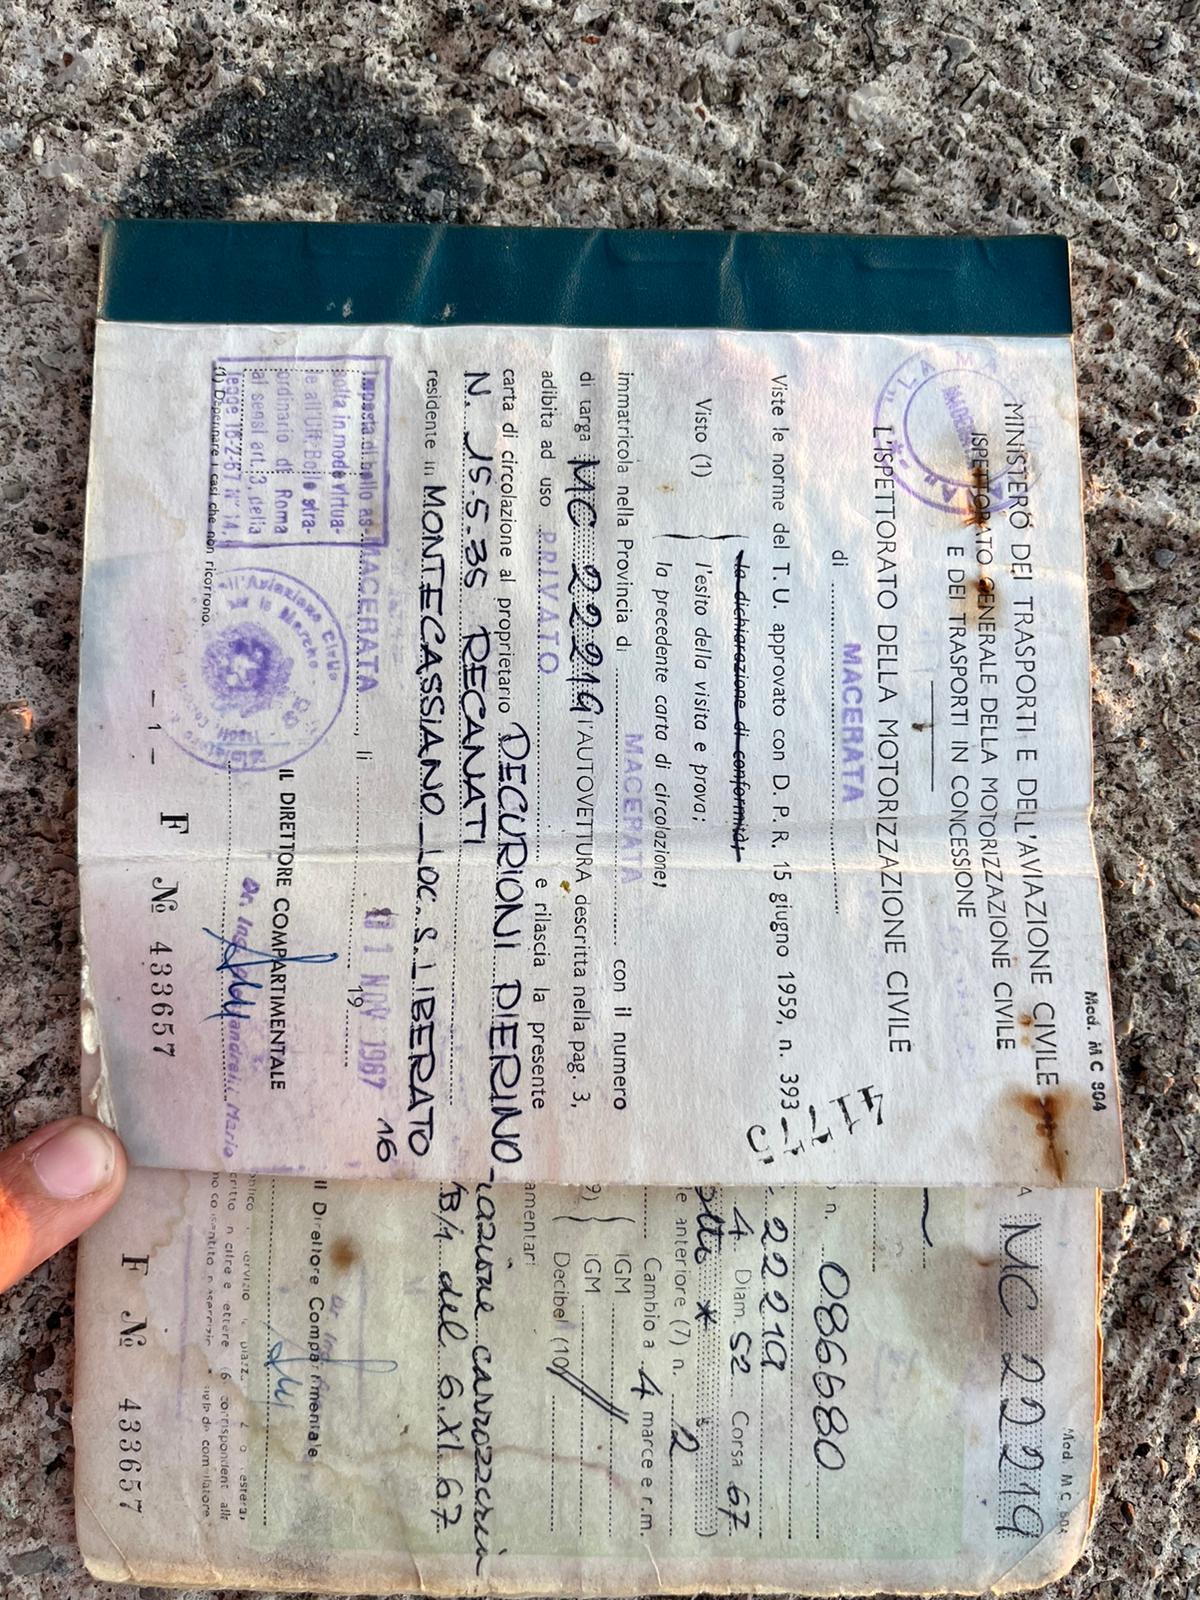 Mod. MC 304
MINISTERO DEI TRASPORTI E DELL'AVIAZIONE CIVILE
ISPETTORATO GENERALE DELLA MOTORIZZAZIONE CIVILE
E DEI TRASPORTI IN CONCESSIONE
L'ISPETTORATO DELLA MOTORIZZAZIONE CIVILE
di MACERATA
Viste le norme del T.U. approvato con D. P. R. 15 giugno 1959, n. 393
la dichiarazione di conformità;
Visto (1) l'esito della visita e prova;
la precedente carta di circolazione;
immatricola nella Provincia di MACERATA con il numero
di targa MC 22219 l'AUTOVETTURA descritta nella pag. 3,
adibita ad uso PRIVATO e rilascia la presente
carta di circolazione al proprietario DECURIONI PIERINO
N. 15.5.35 RECANATI
residente in MONTECASSIANO_LOC. S. LIBERATO
16
MACERATA, li 1 NOV 1967 19
Imposta di bollo as-
solta in modo virtua-
le all'Uff. Bollo stra-
ordinario di Roma
ai sensi art. 3, della
legge 16-2-67 N° 14.
IL DIRETTORE COMPARTIMENTALE
(1) Depennare i casi che non ricorrono.
— 1 —
F № 433657
MC 22219
n. 086680
22219
4 Diam. 52 Corsa 67
le anteriore (7) n. 2
Cambio a 4 marce e r.m.
IGM
9) IGM
Decibel (10)
amentari
carrozzeria
B/4 del 6.XI.67
Il Direttore Compartimentale
F № 433657